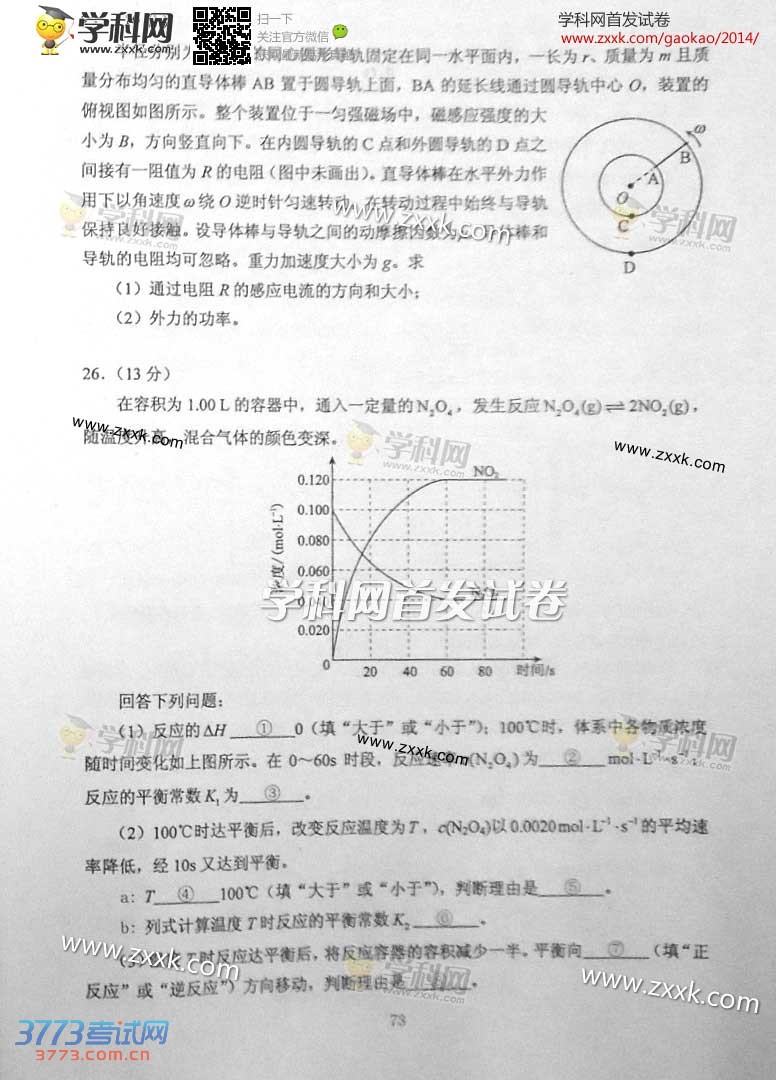 学科网
WWW.ZXXK.COM
扫一下
关注官方微信
学科网首发试卷
www.zxxk.com/gaokao/2014/
的同心圆形导轨固定在同一水平面内，一长为 r、质量为 m 且质
量分布均匀的直导体棒 AB 置于圆导轨上面，BA 的延长线通过圆导轨中心 O，装置的
俯视图如图所示。整个装置位于一匀强磁场中，磁感应强度的大
小为 B，方向竖直向下。在内圆导轨的 C 点和外圆导轨的 D 点之
间接有一阻值为 R 的电阻（图中未画出）。直导体棒在水平外力作
用下以角速度 ω 绕 O 逆时针匀速转动，在转动过程中始终与导轨
保持良好接触。设导体棒与导轨之间的动摩擦因数为 体棒和
导轨的电阻均可忽略。重力加速度大小为 g。求
（1）通过电阻 R 的感应电流的方向和大小；
（2）外力的功率。
ω
B
A
O
C
D
26.（13 分）
在容积为 1.00 L 的容器中，通入一定量的 N₂O₄，发生反应 N₂O₄(g)⇌2NO₂(g)，
随温度升高，混合气体的颜色变深。
www.zxxk.com
学科网
www.zxxk.com
NO₂
0.120
0.100
0.080
0.060
0.020
0
20 40 60 80 时间/s
度/(mol·L⁻¹)
学科网首发试卷
回答下列问题：
（1）反应的 ΔH ① 0（填“大于”或“小于”）；100℃时，体系中各物质浓度
随时间变化如上图所示。在 0~60s 时段，反应速率v(N₂O₄) 为 ② mol·L⁻¹·s⁻¹；
反应的平衡常数 K₁ 为 ③ 。
（2）100℃时达平衡后，改变反应温度为 T，c(N₂O₄)以 0.0020 mol·L⁻¹·s⁻¹ 的平均速
率降低，经 10s 又达到平衡。
a：T ④ 100℃（填“大于”或“小于”），判断理由是 ⑤ 。
b：列式计算温度 T 时反应的平衡常数 K₂ ⑥ 。
（3） T 时反应达平衡后，将反应容器的容积减少一半。平衡向 ⑦ （填“正
反应”或“逆反应”）方向移动，判断理由是 。
www.zxxk.com
学科网
www.zxxk.com
73
3773考试网
3773.com.cn